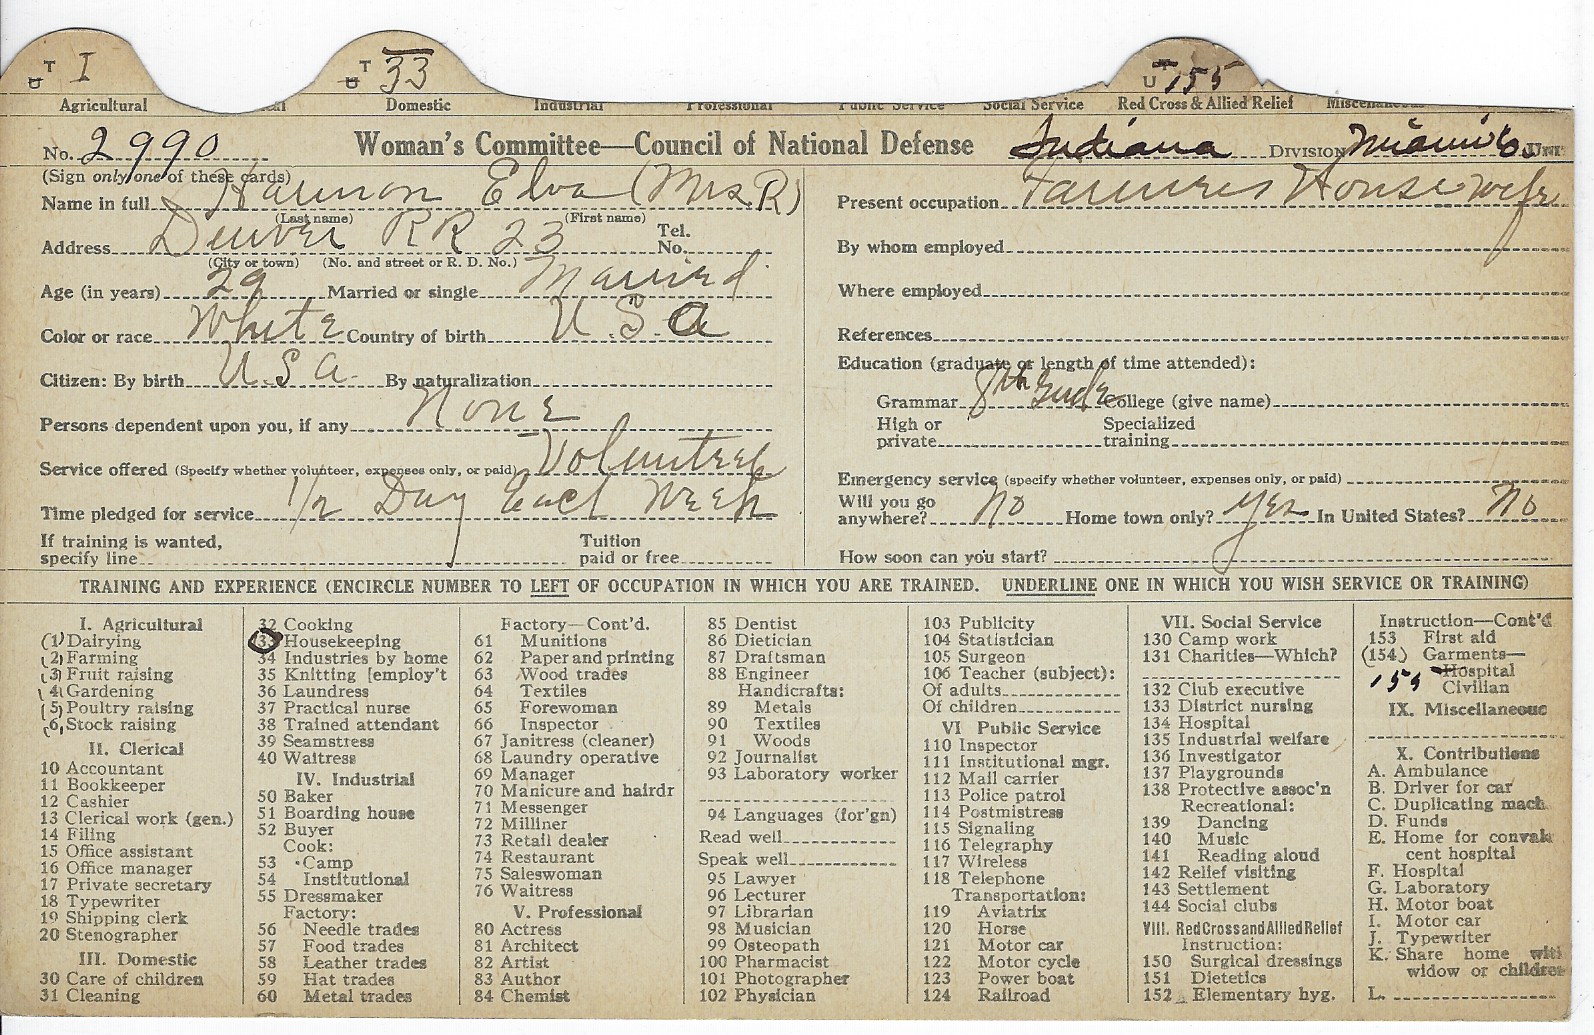 U T I
U T 33
U T 155
Agricultural Domestic Industrial Professional Public Service Social Service Red Cross & Allied Relief Miscellaneous
No. 2990 Woman's Committee—Council of National Defense Indiana DIVISION Miami Co.
(Sign only one of these cards)
Name in full Harmon Elva (Mrs R)
(Last name) (First name)
Address Denver RR 23 Tel. No.
(City or town) (No. and street or R. D. No.)
Age (in years) 29 Married or single Married
Color or race White Country of birth U.S.A
Citizen: By birth U.S A. By naturalization
Persons dependent upon you, if any None
Service offered (Specify whether volunteer, expenses only, or paid) Volunteer
Time pledged for service 1/2 Day Each Week
If training is wanted,
specify line Tuition paid or free
Present occupation Farmers House Wife
By whom employed
Where employed
References
Education (graduate or length of time attended):
Grammar 8th Grade College (give name)
High or private Specialized training
Emergency service (specify whether volunteer, expenses only, or paid)
Will you go anywhere? No Home town only? Yes In United States? No
How soon can you start?
TRAINING AND EXPERIENCE (ENCIRCLE NUMBER TO LEFT OF OCCUPATION IN WHICH YOU ARE TRAINED. UNDERLINE ONE IN WHICH YOU WISH SERVICE OR TRAINING)
I. Agricultural
(1) Dairying
(2) Farming
(3) Fruit raising
(4) Gardening
(5) Poultry raising
(6) Stock raising
II. Clerical
10 Accountant
11 Bookkeeper
12 Cashier
13 Clerical work (gen.)
14 Filing
15 Office assistant
16 Office manager
17 Private secretary
18 Typewriter
19 Shipping clerk
20 Stenographer
III. Domestic
30 Care of children
31 Cleaning
32 Cooking
33 Housekeeping
34 Industries by home
35 Knitting [employ't
36 Laundress
37 Practical nurse
38 Trained attendant
39 Seamstress
40 Waitress
IV. Industrial
50 Baker
51 Boarding house
52 Buyer
Cook:
53 Camp
54 Institutional
55 Dressmaker
Factory:
56 Needle trades
57 Food trades
58 Leather trades
59 Hat trades
60 Metal trades
Factory—Cont'd.
61 Munitions
62 Paper and printing
63 Wood trades
64 Textiles
65 Forewoman
66 Inspector
67 Janitress (cleaner)
68 Laundry operative
69 Manager
70 Manicure and hairdr
71 Messenger
72 Milliner
73 Retail dealer
74 Restaurant
75 Saleswoman
76 Waitress
V. Professional
80 Actress
81 Architect
82 Artist
83 Author
84 Chemist
85 Dentist
86 Dietician
87 Draftsman
88 Engineer
Handicrafts:
89 Metals
90 Textiles
91 Woods
92 Journalist
93 Laboratory worker
94 Languages (for'gn)
Read well
Speak well
95 Lawyer
96 Lecturer
97 Librarian
98 Musician
99 Osteopath
100 Pharmacist
101 Photographer
102 Physician
103 Publicity
104 Statistician
105 Surgeon
106 Teacher (subject):
Of adults
Of children
VI Public Service
110 Inspector
111 Institutional mgr.
112 Mail carrier
113 Police patrol
114 Postmistress
115 Signaling
116 Telegraphy
117 Wireless
118 Telephone
Transportation:
119 Aviatrix
120 Horse
121 Motor car
122 Motor cycle
123 Power boat
124 Railroad
VII. Social Service
130 Camp work
131 Charities—Which?
132 Club executive
133 District nursing
134 Hospital
135 Industrial welfare
136 Investigator
137 Playgrounds
138 Protective assoc'n
Recreational:
139 Dancing
140 Music
141 Reading aloud
142 Relief visiting
143 Settlement
144 Social clubs
VIII. Red Cross and Allied Relief
Instruction:
150 Surgical dressings
151 Dietetics
152 Elementary hyg.
Instruction—Cont'd
153 First aid
(154) Garments—
Hospital
155 Civilian
IX. Miscellaneous
X. Contributions
A. Ambulance
B. Driver for car
C. Duplicating mach.
D. Funds
E. Home for convalescent hospital
F. Hospital
G. Laboratory
H. Motor boat
I. Motor car
J. Typewriter
K. Share home with
widow or children
L.